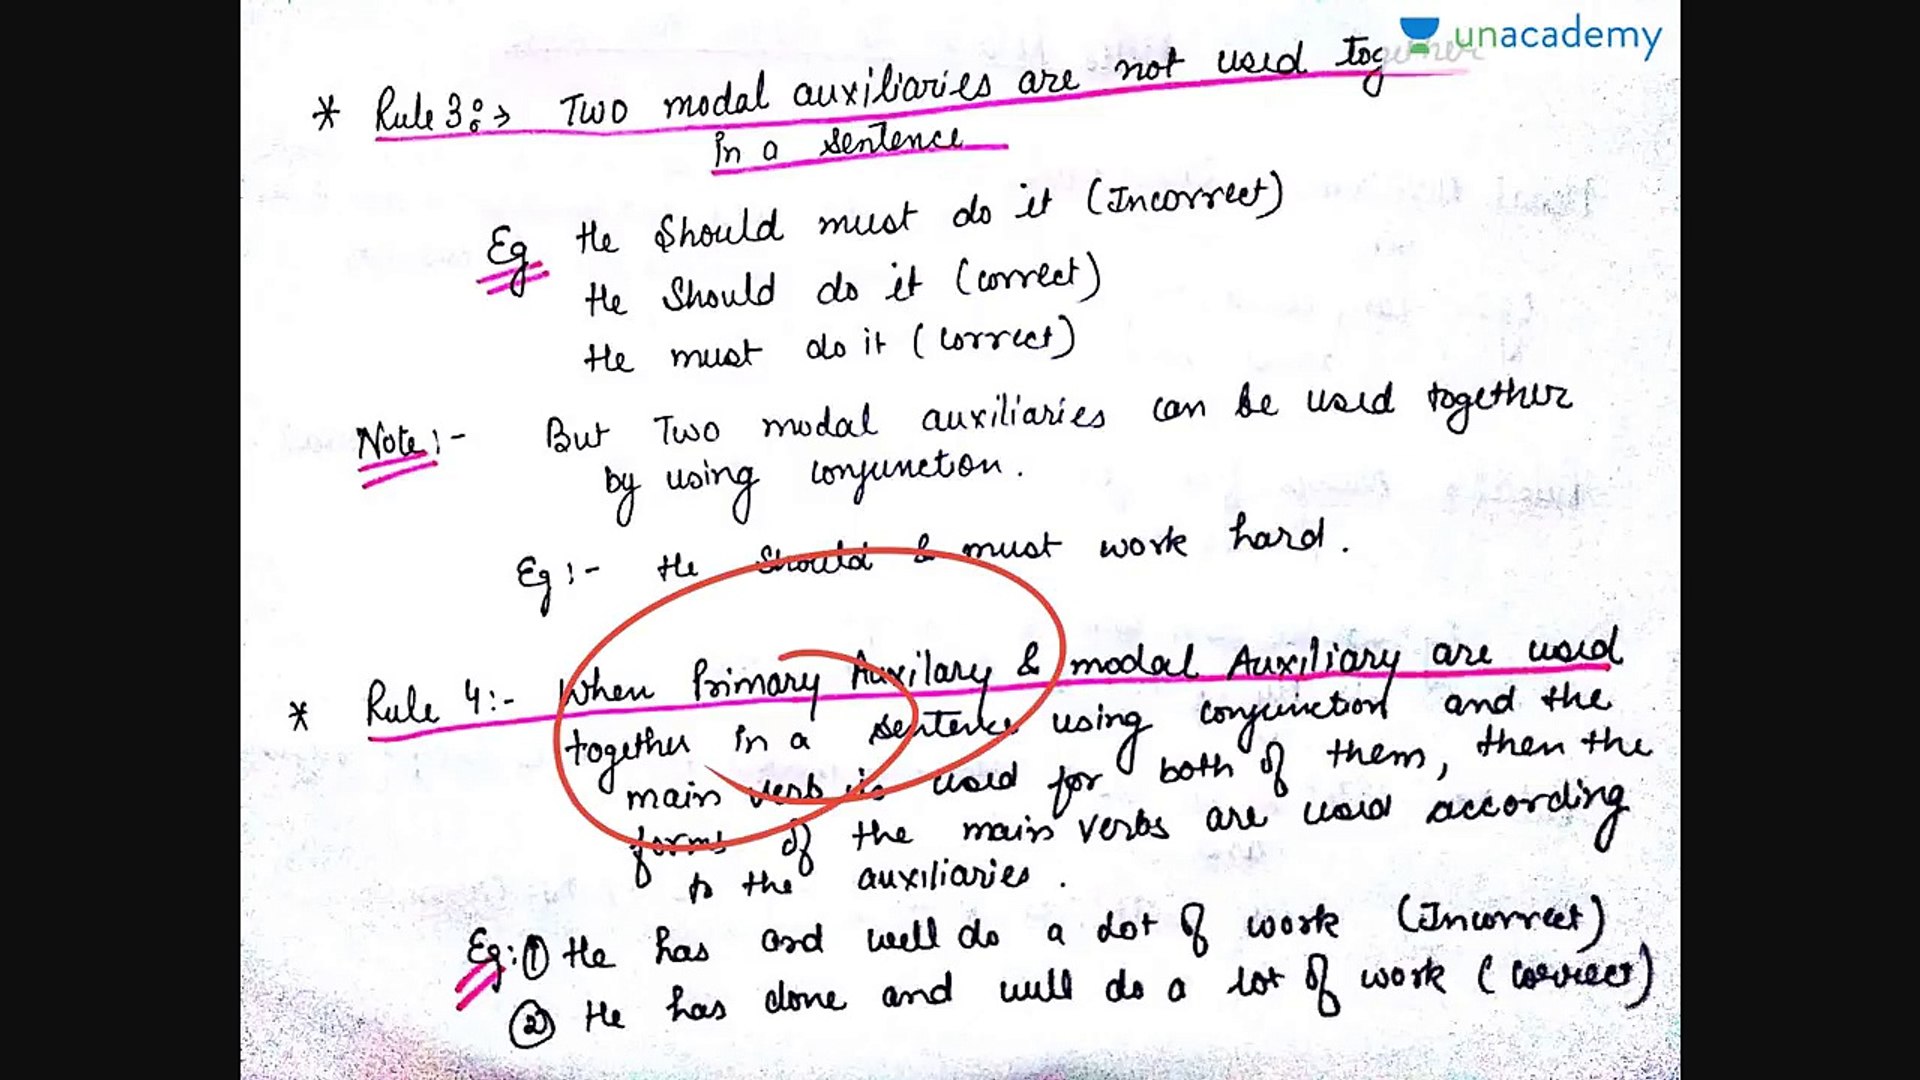 unacademy
* Rule 3:→ Two modal auxiliaries are not used together
in a sentence
Eg He should must do it (Incorrect)
He should do it (correct)
He must do it (correct)
Note:- But Two modal auxiliaries can be used together
by using conjunction.
Eg:- He should & must work hard.
* Rule 4:- When Primary Auxilary & modal Auxiliary are used
together in a sentence using conjunction and the
main verb is used for both of them, then the
forms of the main verbs are used according
to the auxiliaries.
Eg:① He has and will do a lot of work (Incorrect)
② He has done and will do a lot of work (correct)